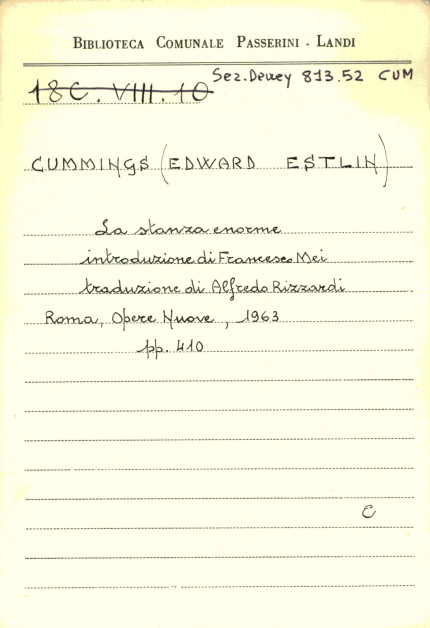 BIBLIOTECA COMUNALE PASSERINI - LANDI
Sez. Dewey 813.52 CUM
18C. VIII. 10
CUMMINGS (EDWARD ESTLIN)
La stanza enorme
introduzione di Francesco Mei
traduzione di Alfredo Rizzardi
Roma, Opere Nuove, 1963
pp. 410
C